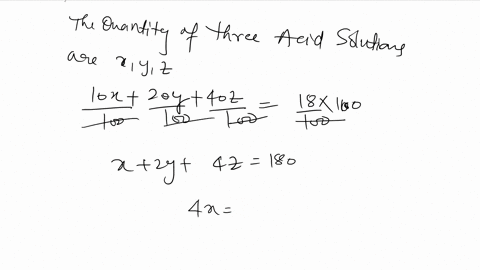 The Quantity of Three Acid Solutions
are x, y, z
10x/100 + 20y/100 + 40z/100 = 18 × 100/100
x + 2y + 4z = 180
4x =